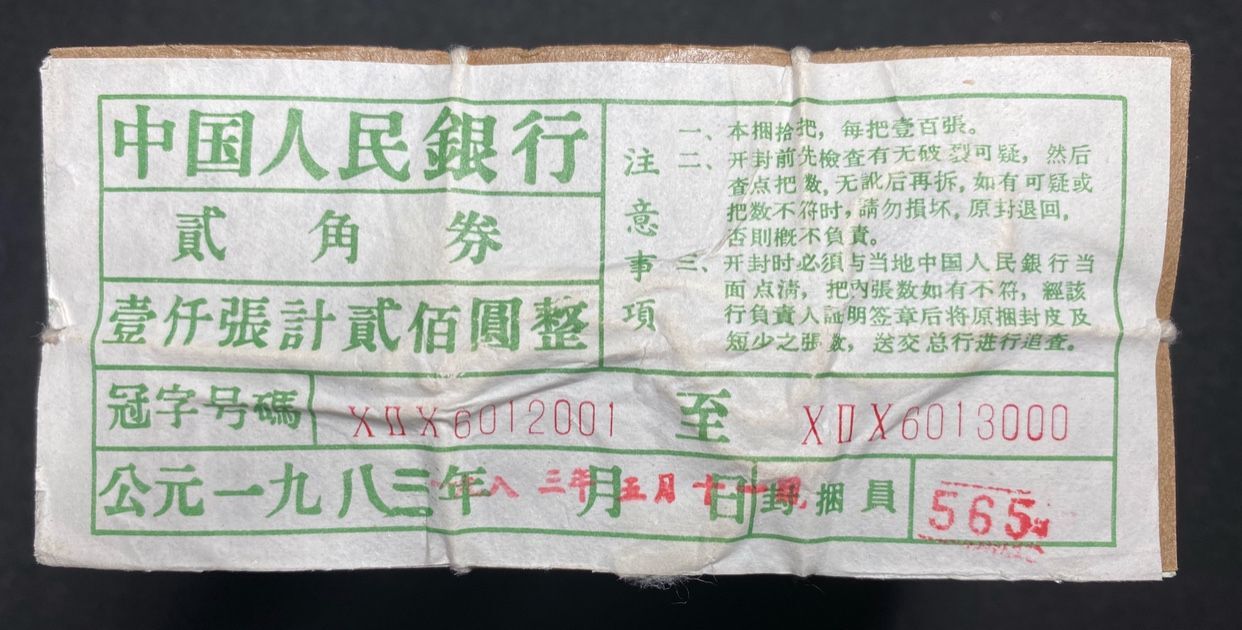 中国人民銀行
貳角券
壹仟張計貳佰圓整
注意事項
一、本捆拾把，每把壹百張。
二、开封前先檢查有无破裂可疑，然后
查点把数，无訛后再拆，如有可疑或
把数不符时，請勿損坏，原封退回，
否則概不負責。
三、开封时必須与当地中国人民銀行当
面点清，把內張数如有不符，經該
行負責人証明签章后将原捆封皮及
短少之張数，送交总行进行追查。
冠字号碼 XⅡX6012001 至 XⅡX6013000
公元一九八三年 月 日 封捆員 565
八三年五月十一